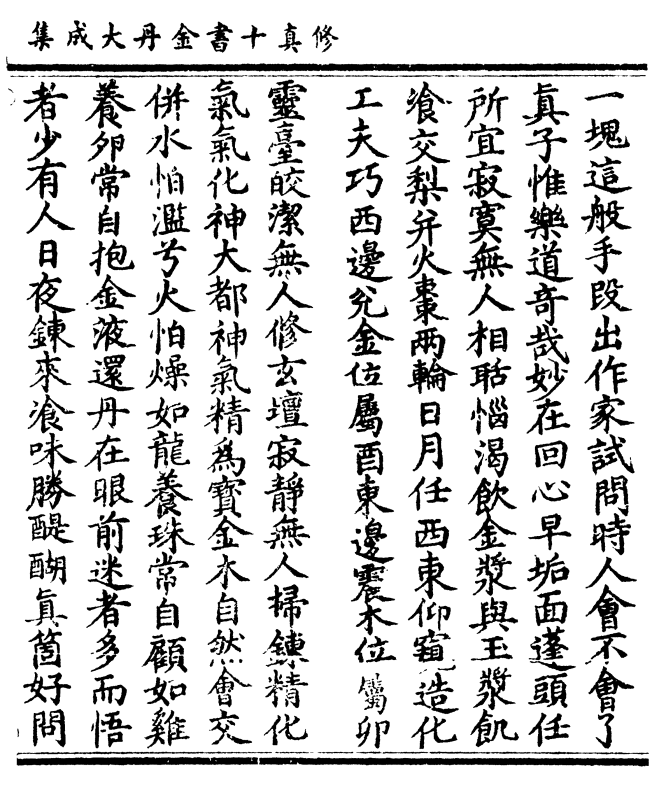 修真十書金丹大成集
一塊這般手段出作家試問時人會不會了
眞子惟樂道奇哉妙在回心早垢面蓬頭任
所宜寂寞無人相聒惱渴飲金漿與玉漿飢
飡交梨并火棗兩輪日月任西東仰窺造化
工夫巧西邊兌金位屬酉東邊震木位屬卯
靈臺皎潔無人修玄壇寂靜無人掃鍊精化
氣氣化神大都神氣精爲寶金木自然會交
併水怕濫兮火怕燥如龍養珠常自顧如雞
養卵常自抱金液還丹在眼前迷者多而悟
者少有人日夜鍊來飡味勝醍醐眞箇好問